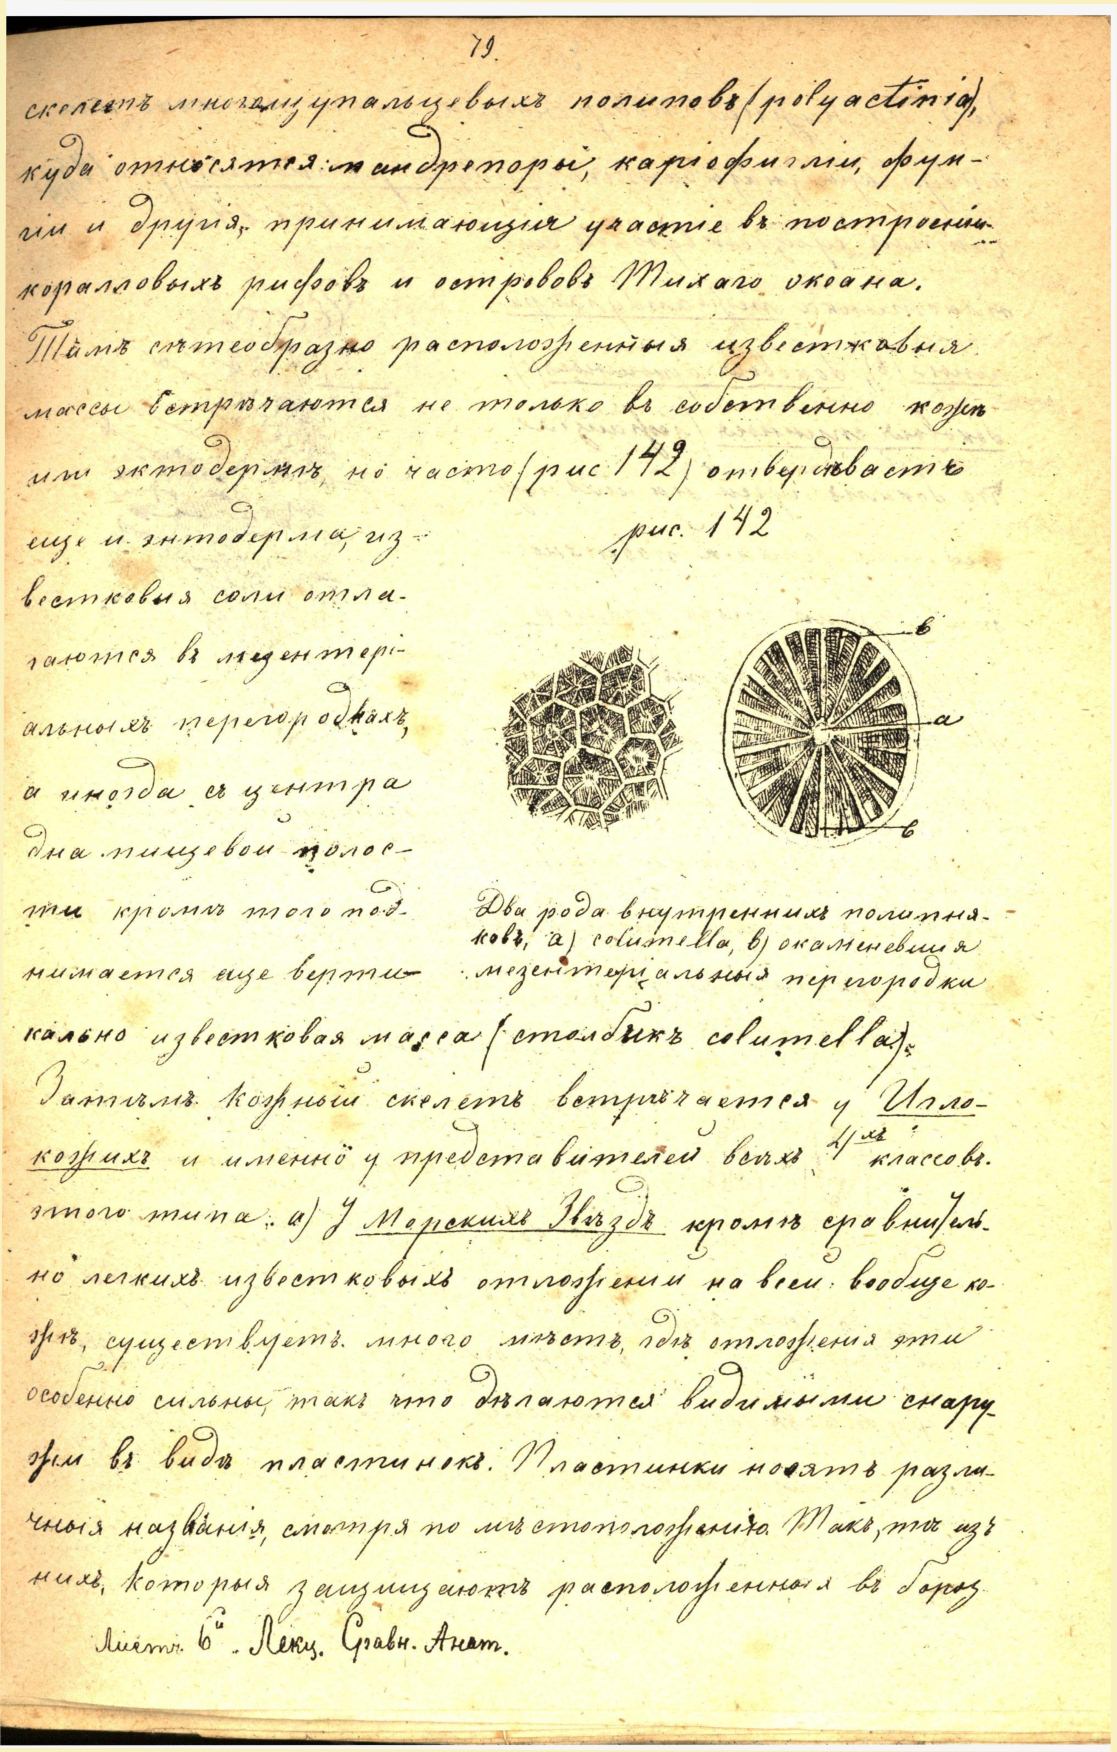 79.
скелетъ многощупальцевыхъ полиповъ (polyactinia),
куда относятся: мандрепоры, каріофиліи, фун-
гіи и другія, принимающія участіе въ построеніи
коралловыхъ рифовъ и острововъ Тихаго океана.
сѣтеобразно расположенныя известковыя
массы встрѣчаются не только въ собственно кожѣ
или эктодермѣ, но часто (рис 142) отвердѣваетъ
еще и энтодерма, из-
вестковыя соли отла-
гаются въ мезентері-
альныхъ перегородкахъ,
а иногда съ центра
дна пищевой полос-
ти кромѣ того под-
нимается еще верти-
рис. 142
в
а
в
Два рода внутреннихъ полипня-
ковъ, а) columella, в) окаменевшія
мезентеріальныя перегородки
кально известковая масса (столбикъ columella).
Затѣмъ кожный скелетъ встрѣчается у Игло-
кожихъ и именно у представителей всѣхъ 4хъ классовъ.
этого типа: а) У Морскихъ Звѣздъ кромѣ сравнитель-
но легкихъ известковыхъ отложеній на всей вообще ко-
жѣ, существуетъ много мѣстъ, гдѣ отложенія эти
особенно сильны, такъ что дѣлаются видимыми снару-
жи въ видѣ пластинокъ. Пластинки носятъ разли-
чныя названія, смотря по мѣстоположенію. Такъ, тѣ изъ
нихъ, которыя защищаютъ расположенныя въ бороз
Листъ 6й. Лекц. Сравн. Анат.